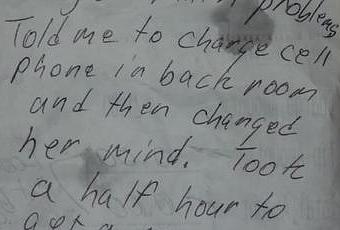 problems
Told me to charge cell
phone in back room
and then changed
her mind. Took
a half hour to